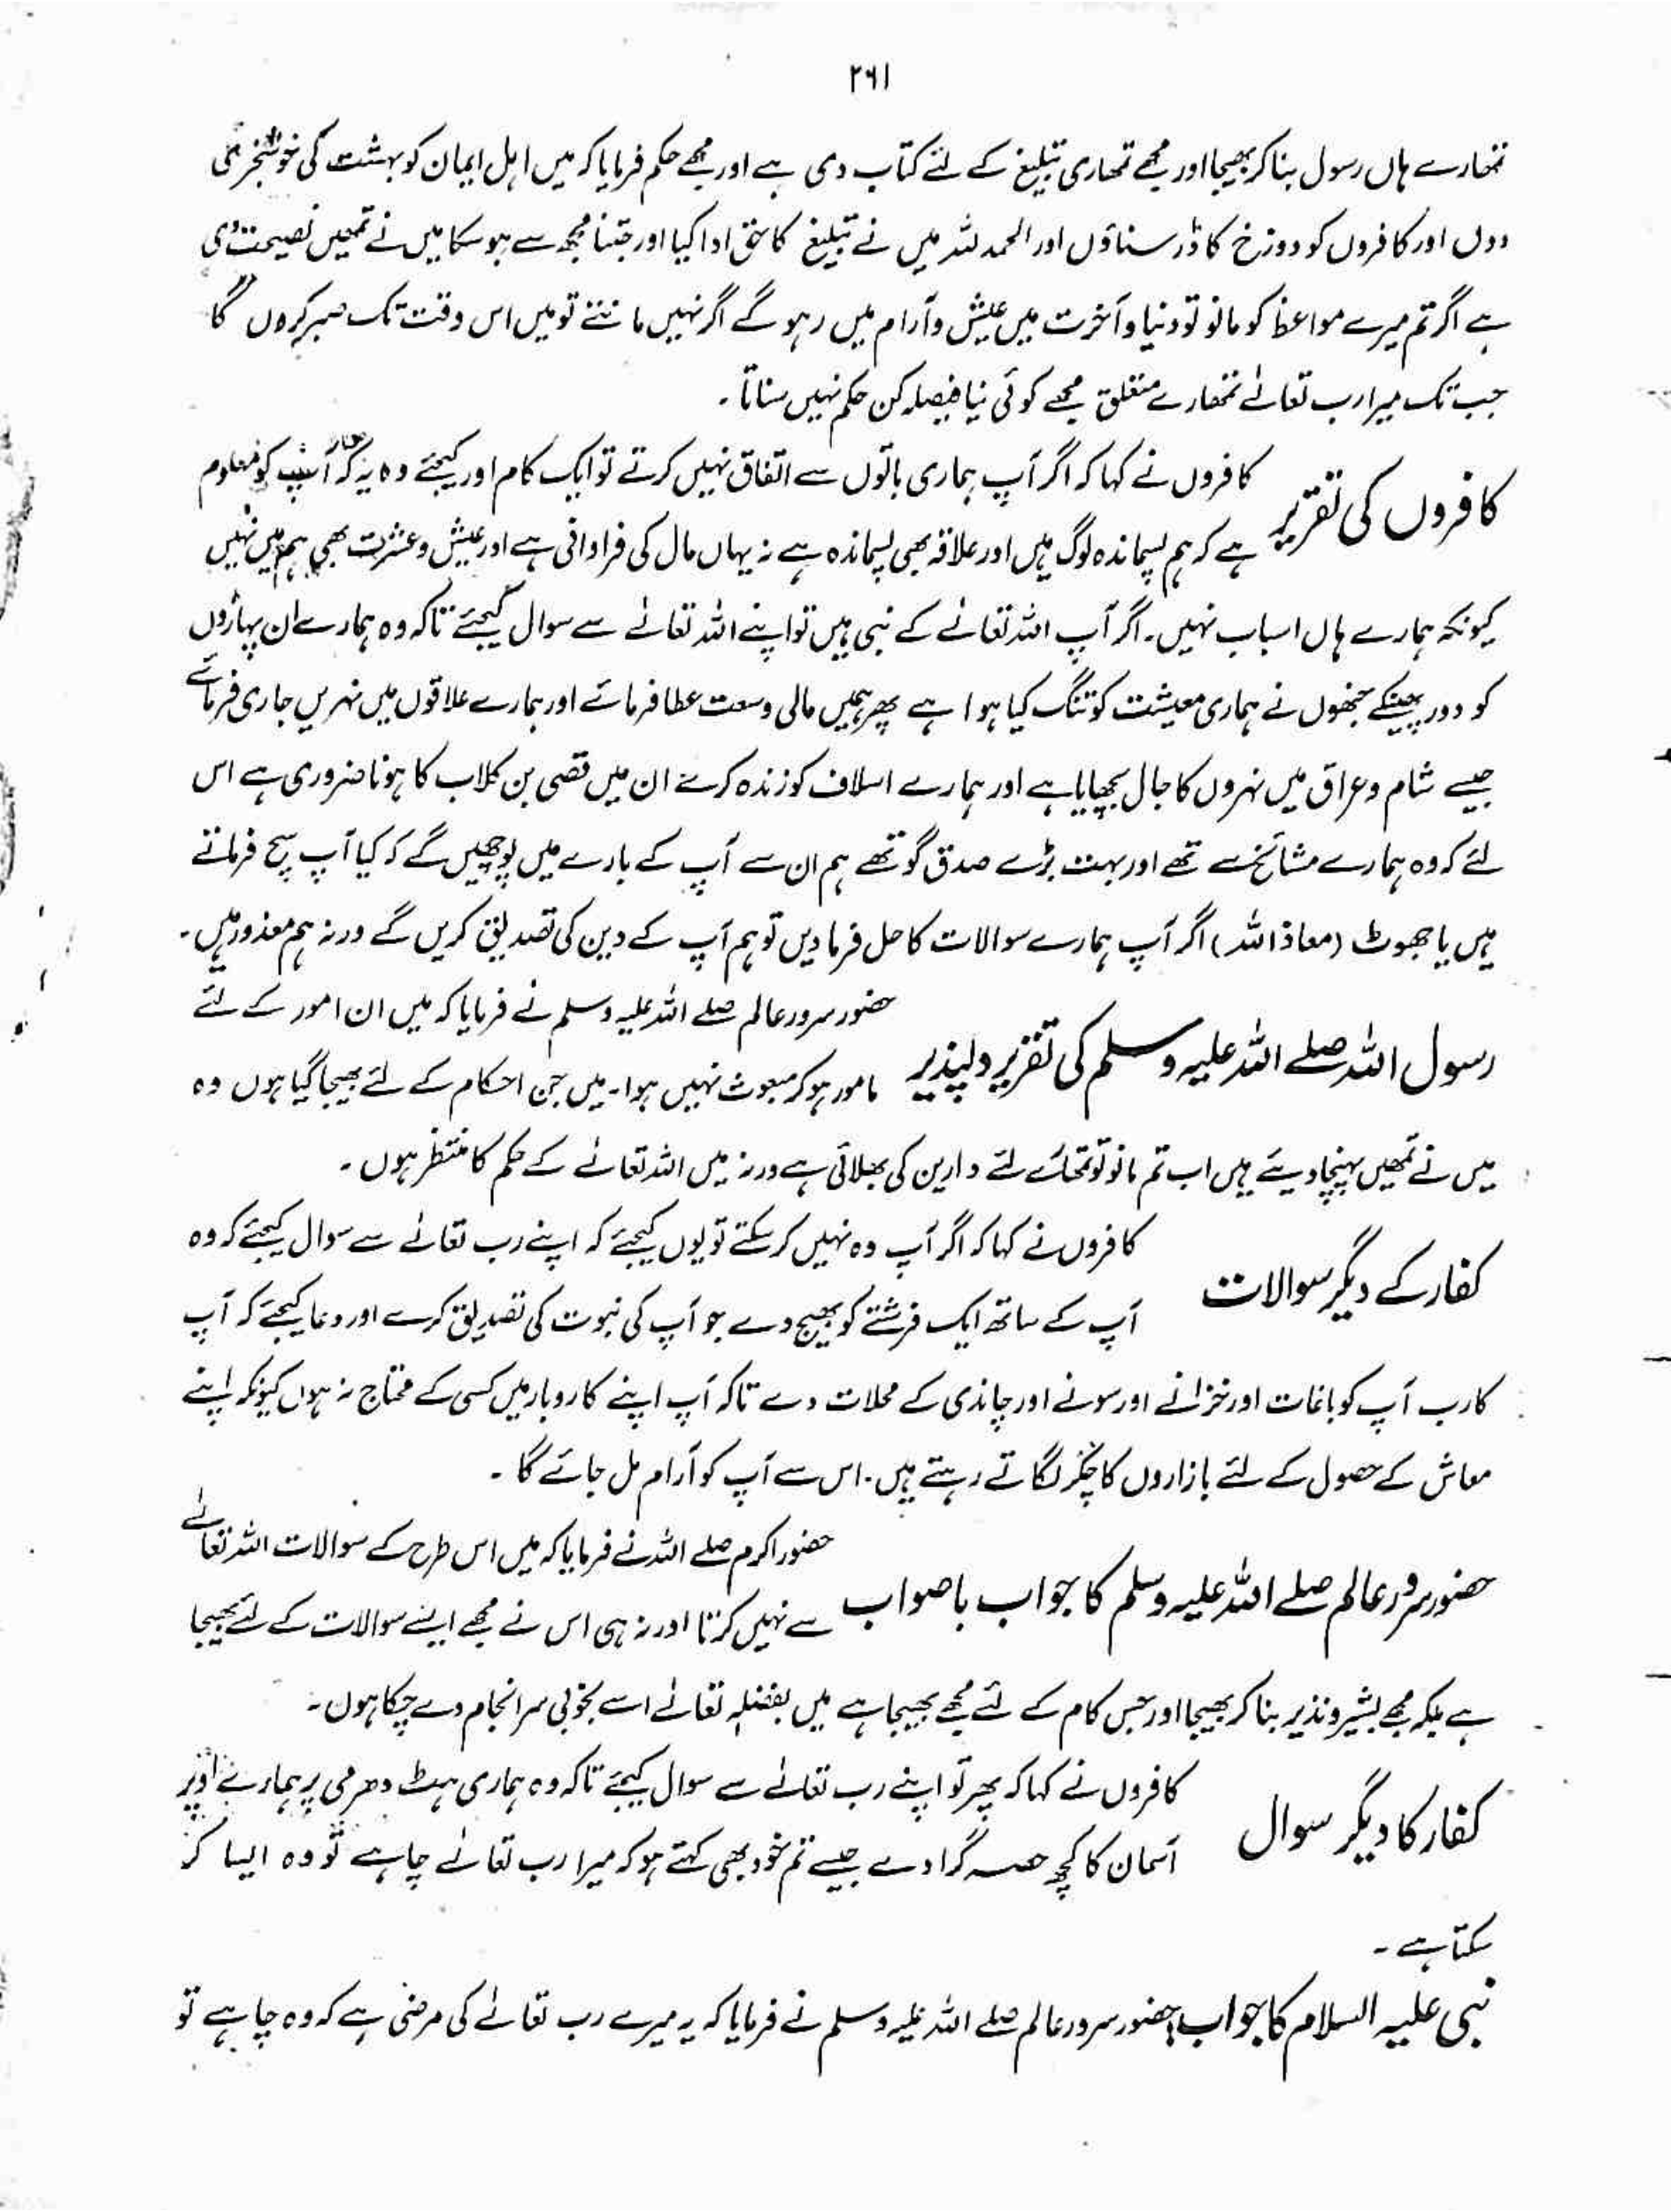 ۲۶۱
تمھارے ہاں رسول بنا کر بھیجا اور مجھے تمھاری تبلیغ کے لئے کتاب دی ہے اور مجھے حکم فرمایا کہ میں اہل ایمان کو بہشت کی خوشخبری
دوں اور کافروں کو دوزخ کا ڈر سناؤں اور الحمد للہ میں نے تبلیغ کا حق ادا کیا اور جتنا مجھ سے ہو سکا میں نے تمھیں نصیحت دی
ہے اگر تم میرے مواعظ کو مانو تو دنیا و آخرت میں عیش و آرام میں رہو گے اگر نہیں مانتے تو میں اس وقت تک صبر کروں گا
جب تک میرا رب تعالےٰ تمھارے متعلق مجھے کوئی نیا فیصلہ کن حکم نہیں سناتا ۔
کافروں کی تقریر کافروں نے کہا کہ اگر آپ ہماری باتوں سے اتفاق نہیں کرتے تو ایک کام اور کیجئے وہ یہ کہ آپ کو معلوم
ہے کہ ہم پسماندہ لوگ ہیں اور علاقہ بھی پسماندہ ہے نہ یہاں مال کی فراوانی ہے اور عیش و عشرت بھی ہم میں نہیں
کیونکہ ہمارے ہاں اسباب نہیں۔ اگر آپ اللہ تعالےٰ کے نبی ہیں تو اپنے اللہ تعالےٰ سے سوال کیجئے تاکہ وہ ہمارے ان پہاڑوں
کو دور پھینکے جنھوں نے ہماری معیشت کو تنگ کیا ہوا ہے پھر ہمیں مالی وسعت عطا فرمائے اور ہمارے علاقوں میں نہریں جاری فرمائے
جیسے شام و عراق میں نہروں کا جال بچھایا ہے اور ہمارے اسلاف کو زندہ کرے ان میں قصی بن کلاب کا ہونا ضروری ہے اس
لئے کہ وہ ہمارے مشائخ سے تھے اور بہت بڑے صدق گو تھے ہم ان سے آپ کے بارے میں پوچھیں گے کہ کیا آپ سچ فرماتے
ہیں یا جھوٹ (معاذ اللہ) اگر آپ ہمارے سوالات کا حل فرما دیں تو ہم آپ کے دین کی تصدیق کریں گے ورنہ ہم معذور ہیں۔
رسول اللہ صلے اللہ علیہ وسلم کی تقریر دلپذیر حضور سرور عالم صلے اللہ علیہ وسلم نے فرمایا کہ میں ان امور کے لئے
مامور ہو کر مبعوث نہیں ہوا۔ میں جن احکام کے لئے بھیجا گیا ہوں وہ
میں نے تمھیں پہنچا دیئے ہیں اب تم مانو تو تمھارے لئے دارین کی بھلائی ہے ورنہ میں اللہ تعالےٰ کے حکم کا منتظر ہوں ۔
کفار کے دیگر سوالات کافروں نے کہا کہ اگر آپ وہ نہیں کر سکتے تو یوں کیجئے کہ اپنے رب تعالےٰ سے سوال کیجئے کہ وہ
آپ کے ساتھ ایک فرشتے کو بھیج دے جو آپ کی نبوت کی تصدیق کرے اور دعا کیجئے کہ آپ
کا رب آپ کو باغات اور خزانے اور سونے اور چاندی کے محلات دے تاکہ آپ اپنے کاروبار میں کسی کے محتاج نہ ہوں کیونکہ اپنے
معاش کے حصول کے لئے بازاروں کا چکر لگاتے رہتے ہیں۔ اس سے آپ کو آرام مل جائے گا ۔
حضور سرور عالم صلے اللہ علیہ وسلم کا جواب باصواب حضور اکرم صلے اللہ نے فرمایا کہ میں اس طرح کے سوالات اللہ تعالےٰ
سے نہیں کرتا اور نہ ہی اس نے مجھے ایسے سوالات کے لئے بھیجا
ہے بلکہ مجھے بشیر و نذیر بنا کر بھیجا اور جس کام کے لئے مجھے بھیجا ہے میں بفضلہ تعالےٰ اسے بخوبی سرانجام دے چکا ہوں۔
کفار کا دیگر سوال کافروں نے کہا کہ پھر تو اپنے رب تعالےٰ سے سوال کیجئے تاکہ وہ ہماری ہٹ دھرمی پر ہمارے اوپر
آسمان کا کچھ حصہ گرا دے جیسے تم خود بھی کہتے ہو کہ میرا رب تعالےٰ چاہے تو وہ ایسا کر
سکتا ہے ۔
نبی علیہ السلام کا جواب: حضور سرور عالم صلے اللہ علیہ وسلم نے فرمایا کہ یہ میرے رب تعالےٰ کی مرضی ہے کہ وہ چاہے تو